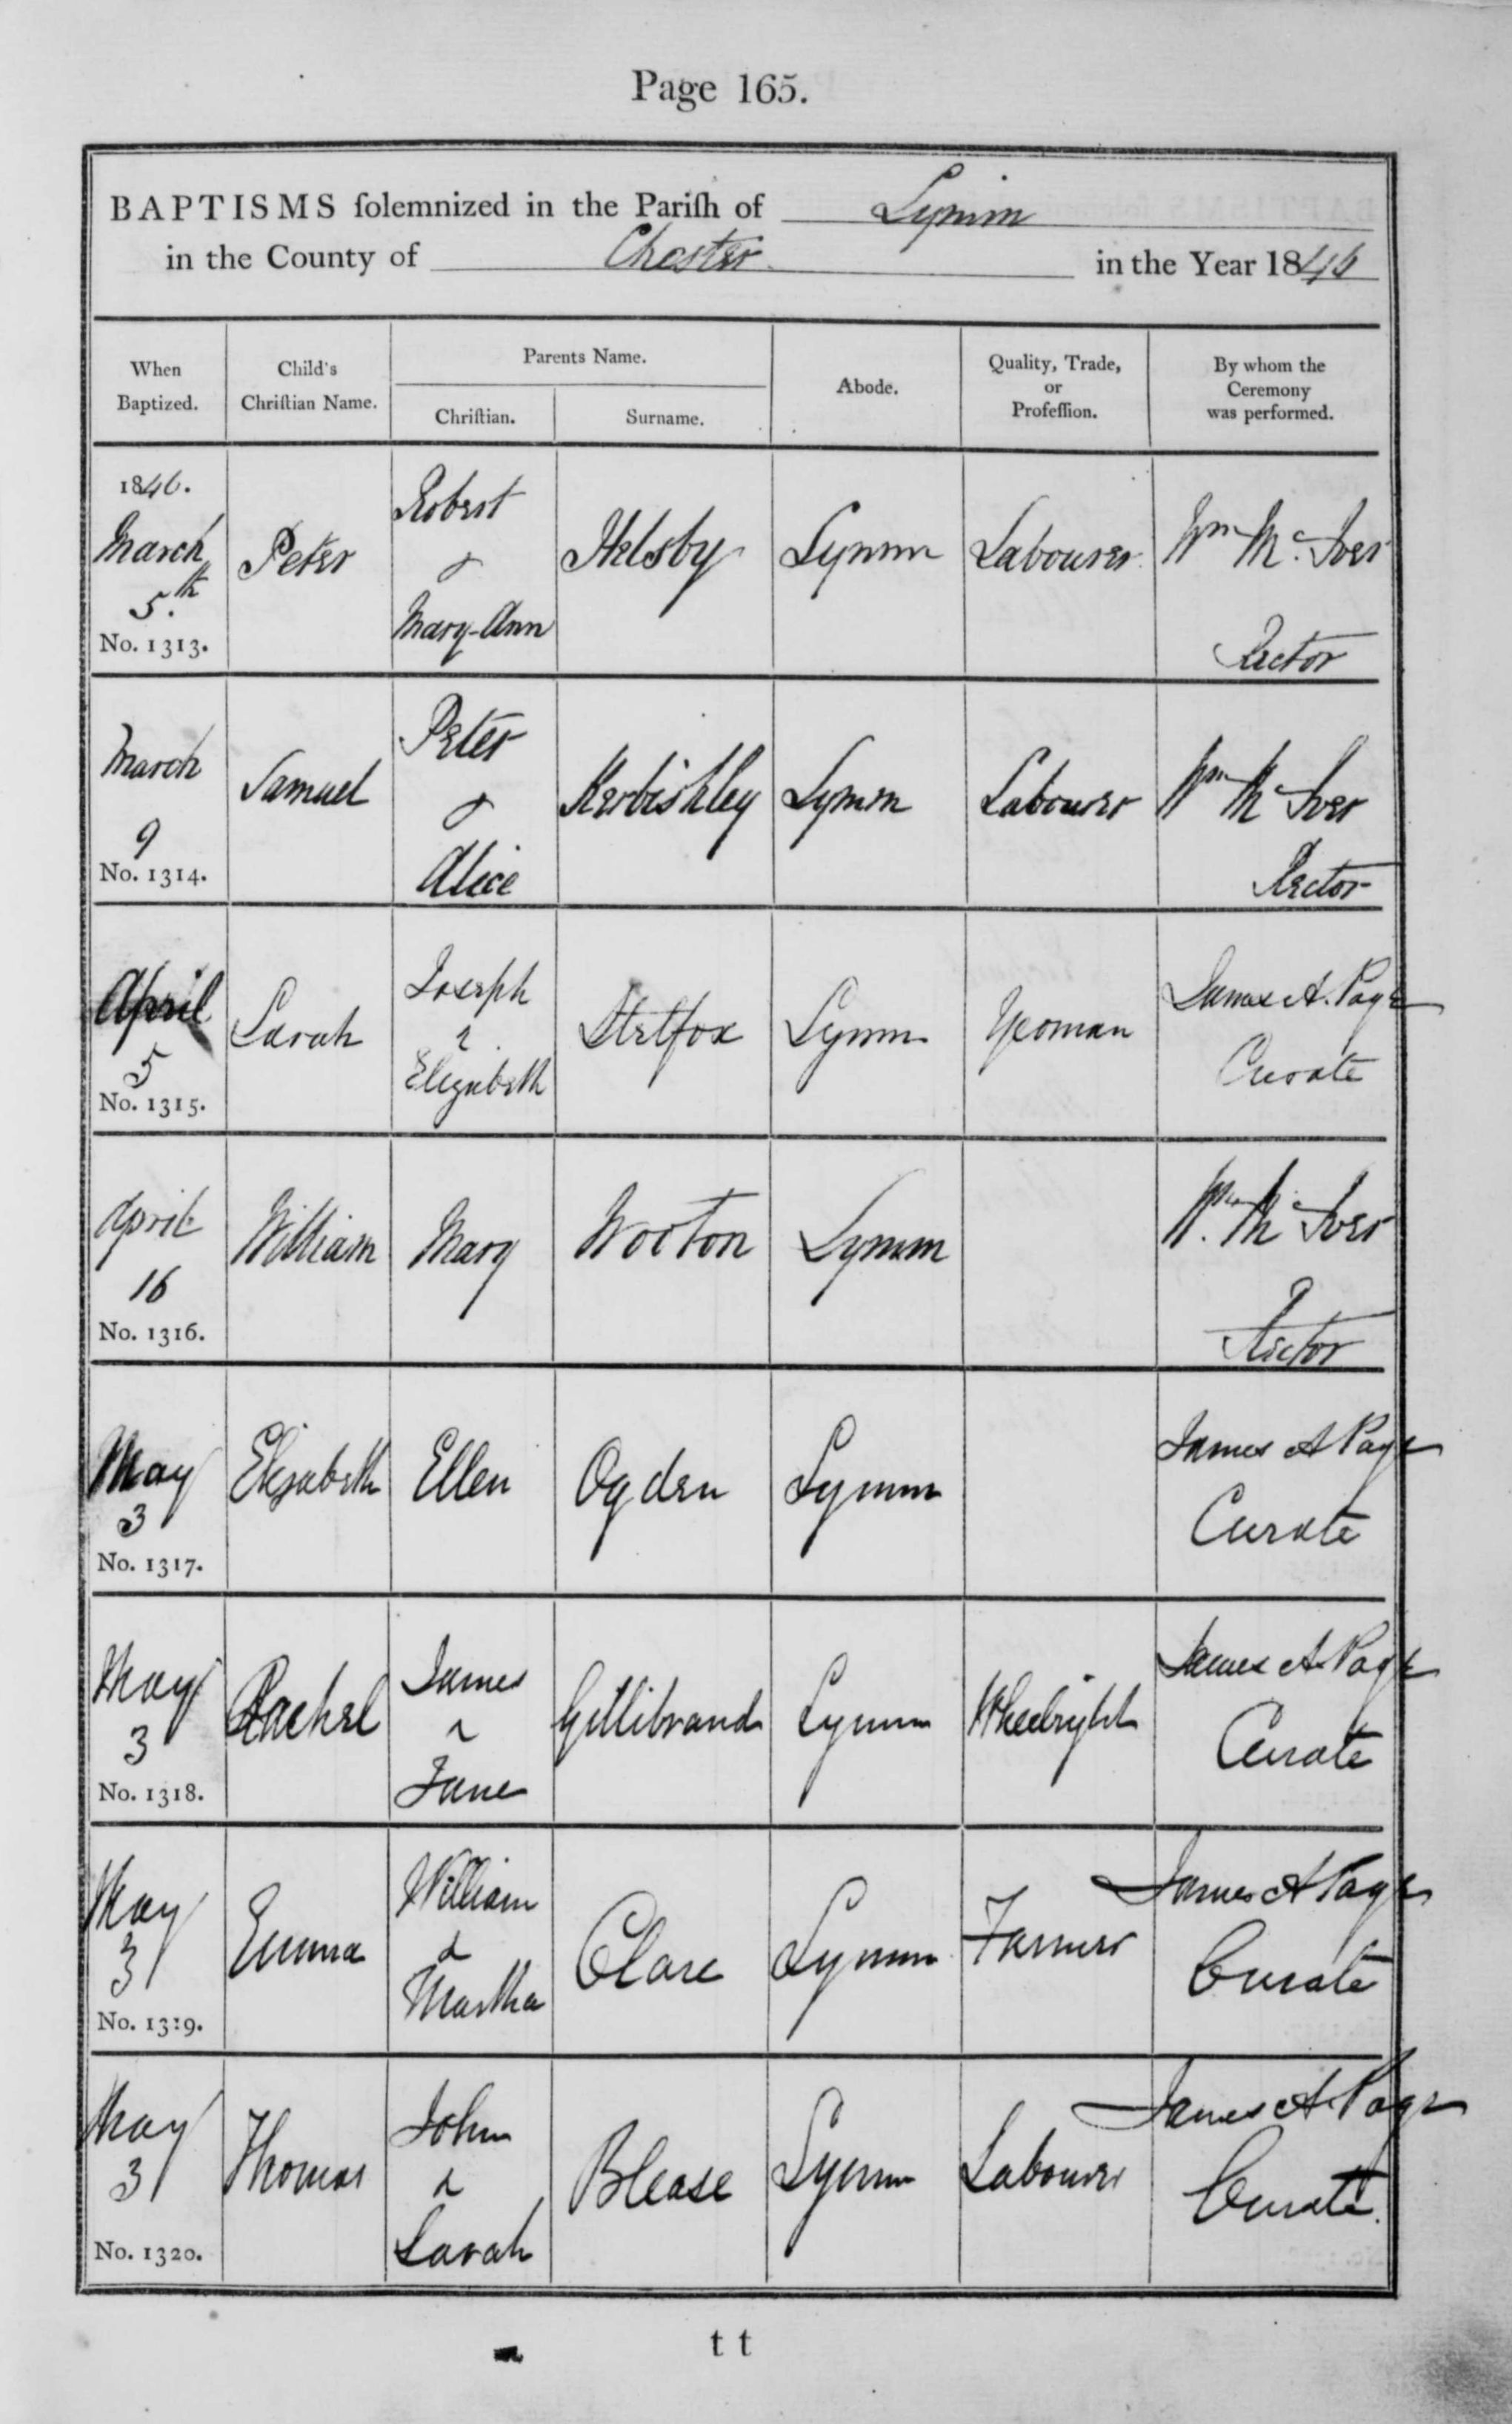 Page 165.
BAPTISMS solemnized in the Parish of Lymm
in the County of Chester in the Year 1846
When Baptized.
Child's Christian Name.
Parents Name.
Christian.
Surname.
Abode.
Quality, Trade, or Profession.
By whom the Ceremony was performed.
1846.
March
5.th
No. 1313.
Peter
Robert
&
Mary-Ann
Helsby
Lymm
Labourer
Wm McIver
Rector
March
9
No. 1314.
Samuel
Peter
&
Alice
Kerbishley
Lymm
Labourer
Wm McIver
Rector
April
5
No. 1315.
Sarah
Joseph
&
Elizabeth
Stelfox
Lymm
Yeoman
James A. Page
Curate
April
16
No. 1316.
William
Mary
Wooton
Lymm
Wm McIver
Rector
May
3
No. 1317.
Elizabeth
Ellen
Ogden
Lymm
James A Page
Curate
May
3
No. 1318.
Rachel
James
&
Jane
Gillibrand
Lymm
Wheelright
James A Page
Curate
May
3
No. 1319.
Emma
William
&
Martha
Clare
Lymm
Farmer
James A Page
Curate
May
3
No. 1320.
Thomas
John
&
Sarah
Blease
Lymm
Labourer
James A. Page
Curate.
t t